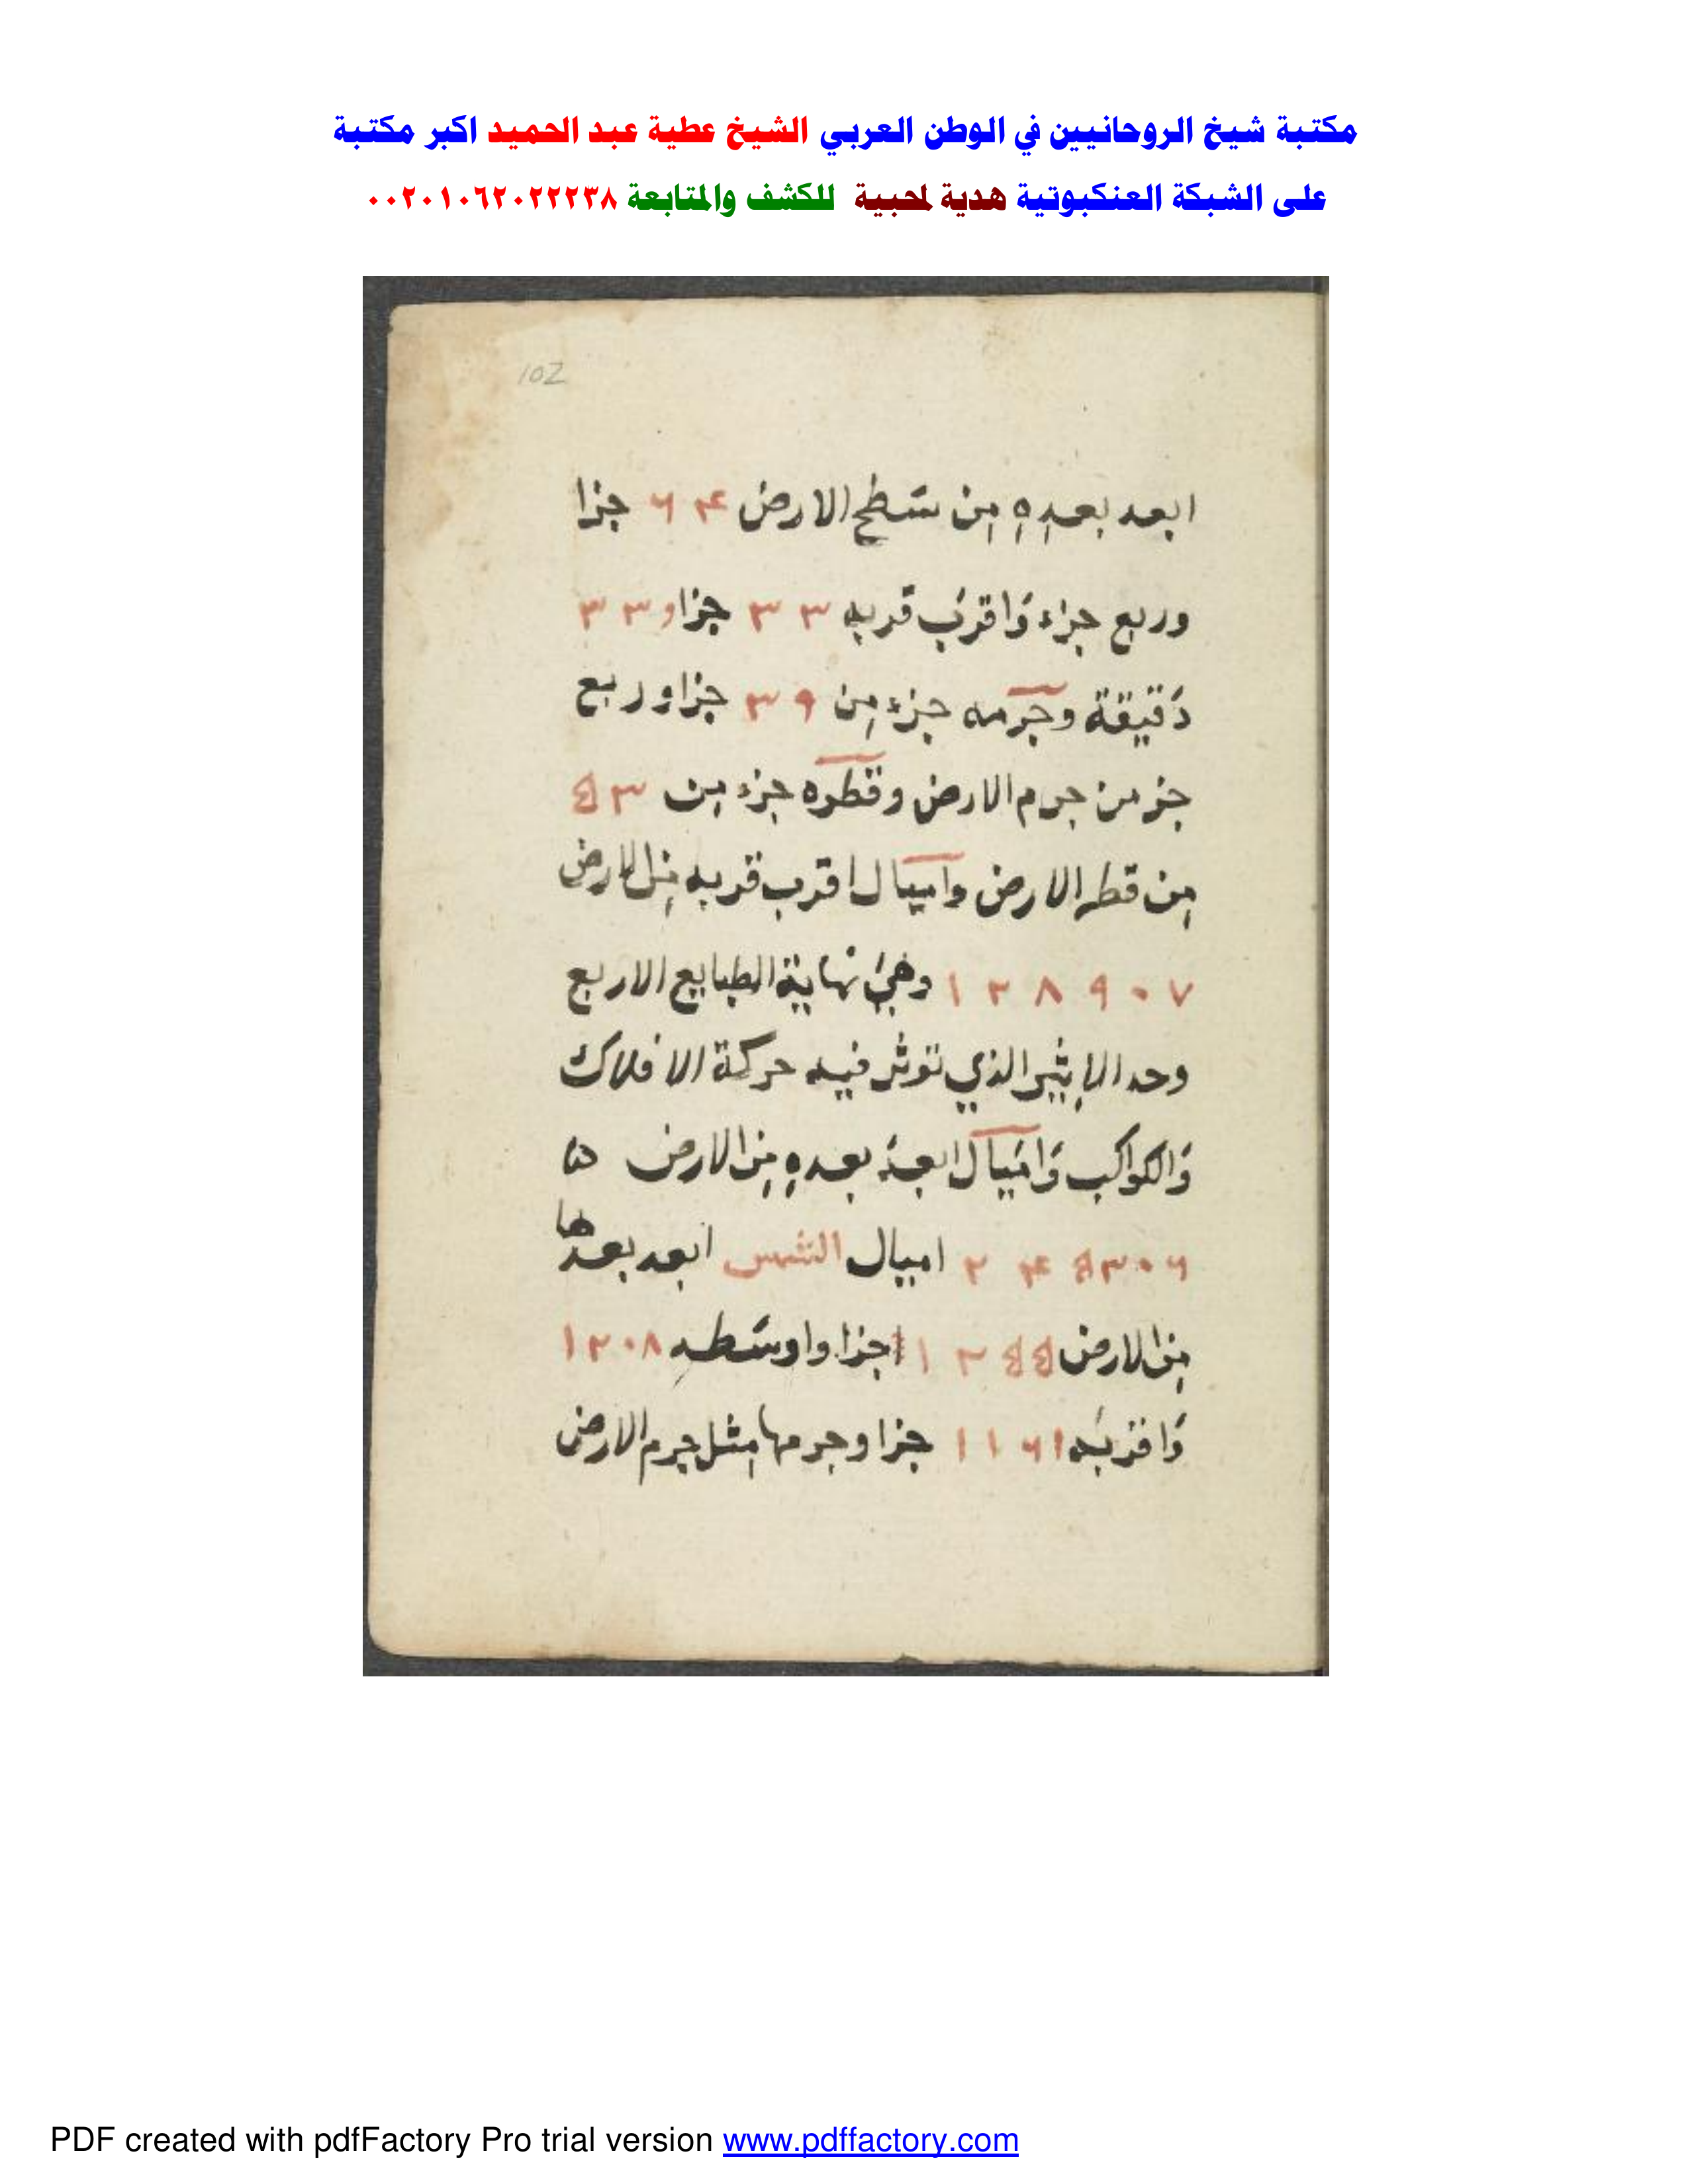 مكتبة شيخ الروحانيين في الوطن العربي الشيخ عطية عبد الحميد اكبر مكتبة
على الشبكة العنكبوتية هدية لمحبية للكشف والمتابعة ٠٠٢٠١٠٦٢٠٢٢٢٣٨
102
ابعد بعده من سطح الارض ۴ ٦ جزا
وربع جزاء وَاقرَب قربه ٣ ٣ جزا و ٣ ٣
دَقيقة وجرمه جزء من ٩ ٣ جزا وربع
جز من جرم الارض وقطره جزء من ٣
من قطر الارض واميال اقرب قربه من الارض
٧ ٠ ٩ ٨ ٢ ١ وهي نهاية الطبايع الاربع
وحد الاثير الذي توثر فيه حركة الافلاك
وَالكواكب وَاميال ابعد بعده من الارض
اميال الشمس ابعد بعدها
من الارض جزا واوسَطه ١٢٠٨
وَاقربه ١ ٦ ١ ١ جزا وجرمها مثل جرم الارض
PDF created with pdfFactory Pro trial version www.pdffactory.com